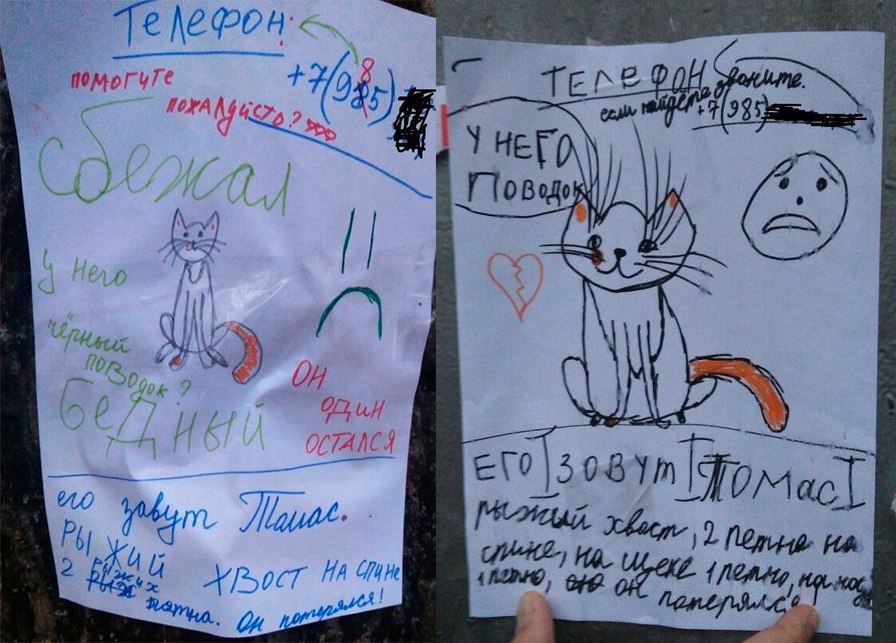 Телефон:
+7(985)
8
помогите
пожалуйсто?
сбежал
у него
чёрный
поводок?
Бедный
Он
один
остался
его завут Томас.
Рыжий хвост на спине
2 рыжих
пятна. Он потерялся!
Телефон
если найдёте звоните.
+7(985)
У него
поводок
Его зовут Томас
рыжий хвост, 2 петна на
спине, на щеке 1 петно, на нос
1 петно, он потерялся